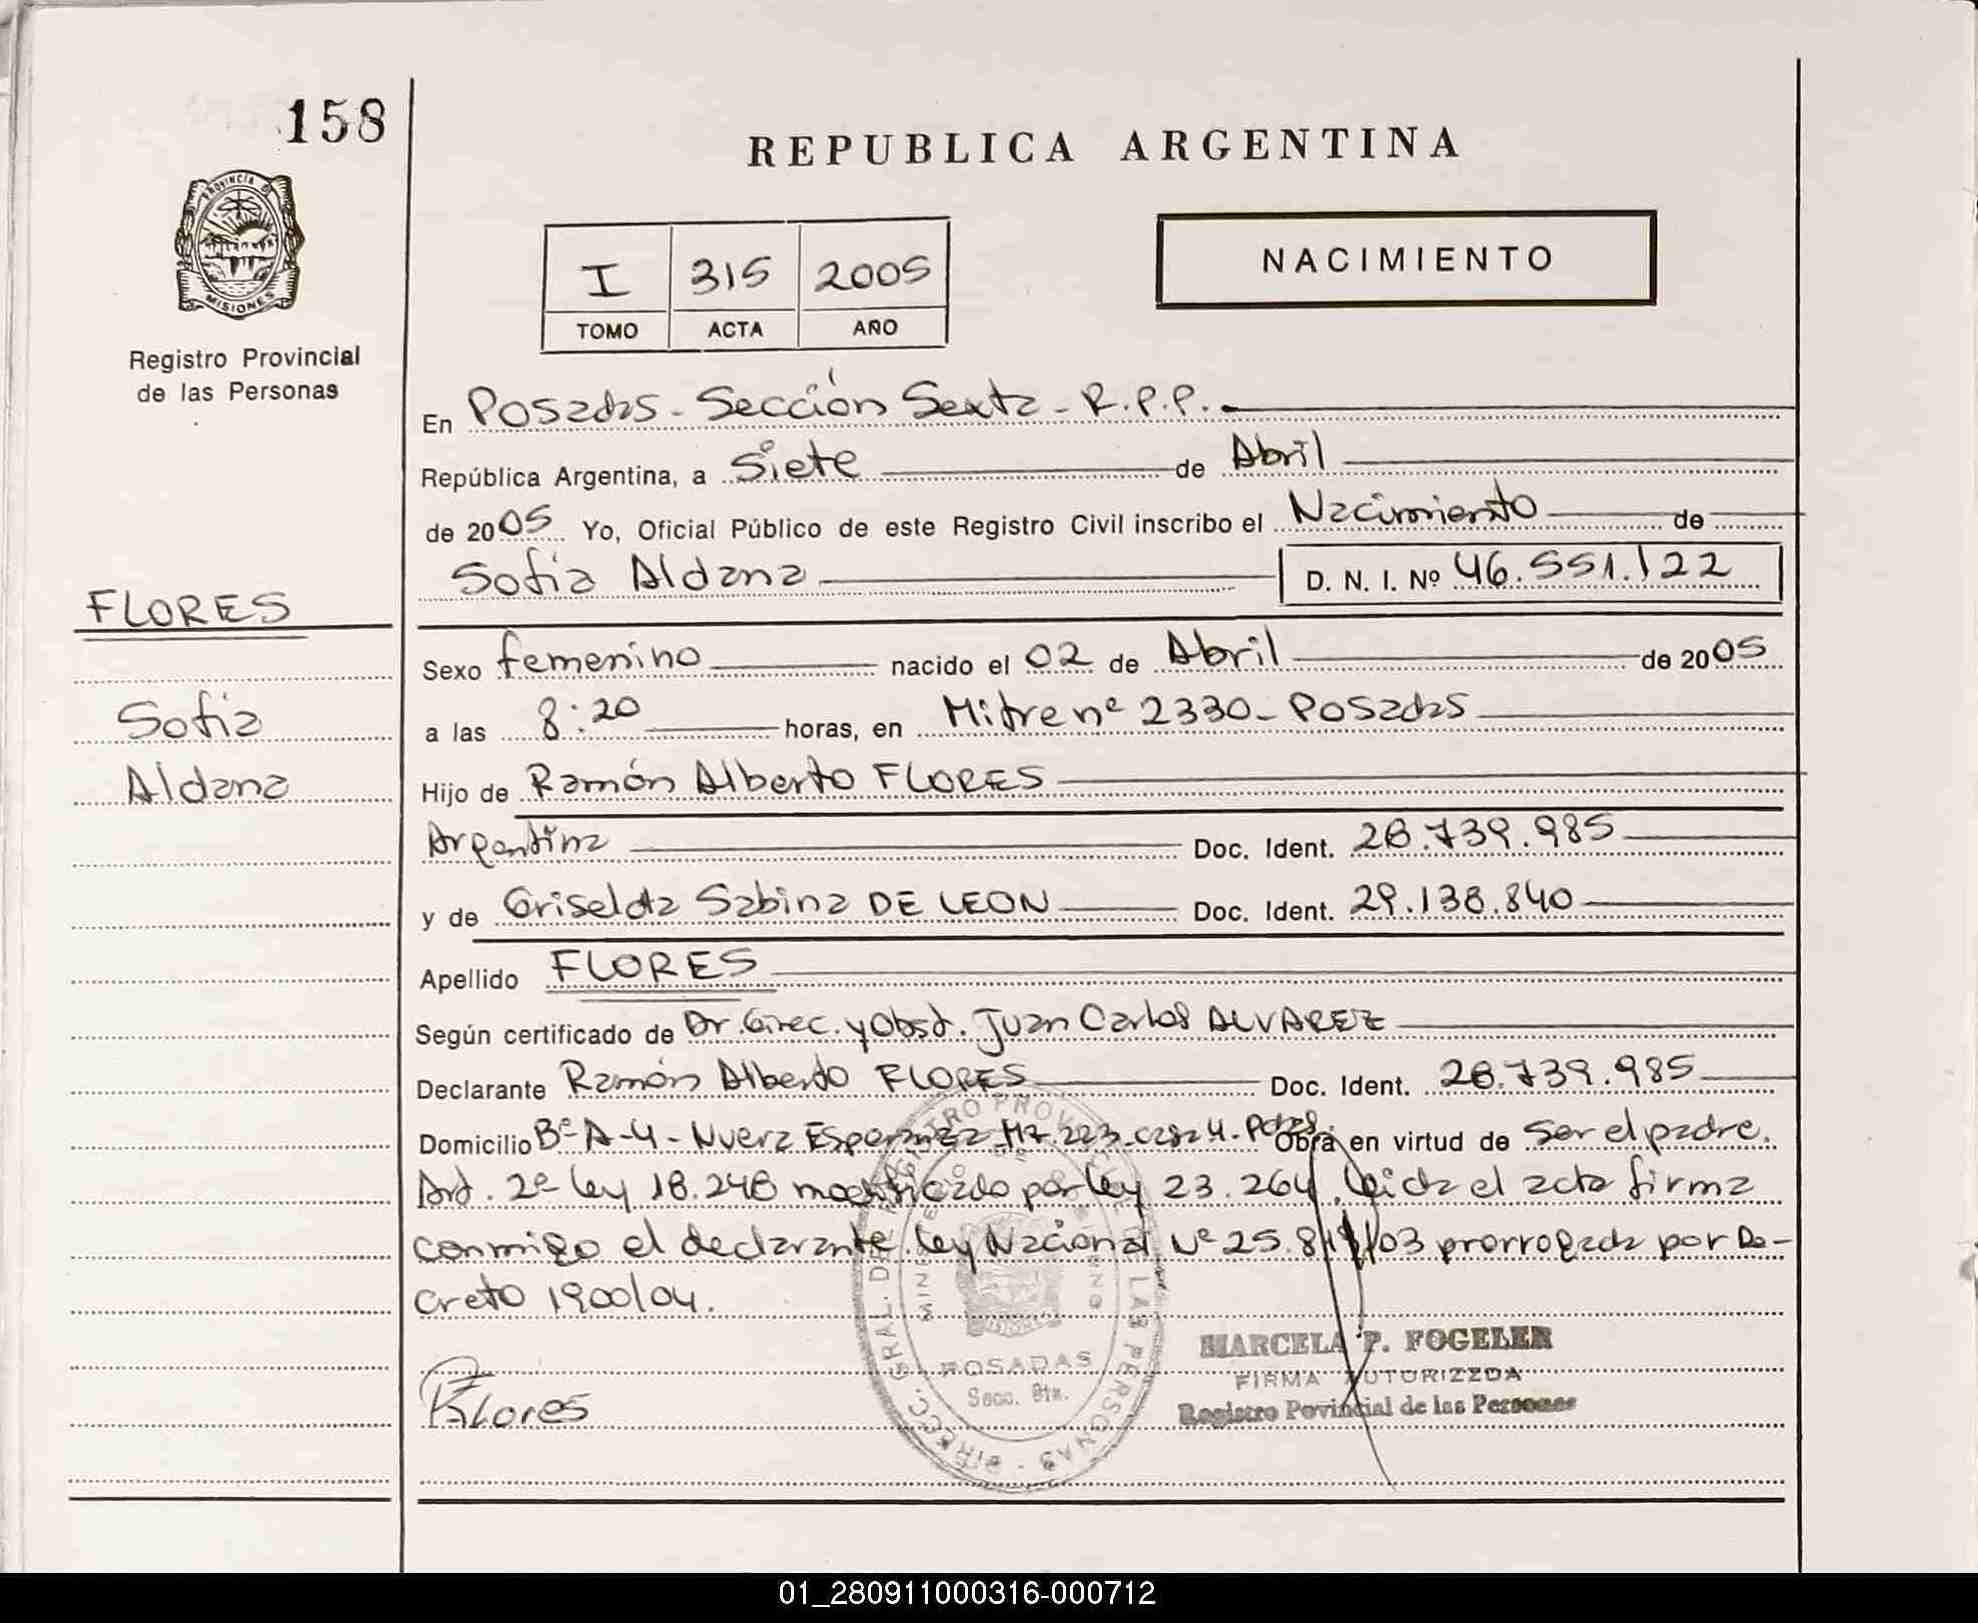 158
REPUBLICA ARGENTINA
PROVINCIA DE
MISIONES
Registro Provincial
de las Personas
I 315 2005
TOMO ACTA AÑO
NACIMIENTO
En Posadas - Sección Sexta - R.P.P.
República Argentina, a Siete de Abril
de 2005 Yo, Oficial Público de este Registro Civil inscribo el Nacimiento de
Sofia Aldana D. N. I. Nº 46.551.122
FLORES
Sofia
Aldana
Sexo femenino nacido el 02 de Abril de 2005
a las 8:20 horas, en Mitre nº 2330 - Posadas
Hijo de Ramón Alberto FLORES
Argentina Doc. Ident. 28.739.985
y de Griselda Sabina DE LEON Doc. Ident. 29.138.840
Apellido FLORES
Según certificado de Dr. Girec. y Obst. Juan Carlos ALVAREZ
Declarante Ramón Alberto FLORES Doc. Ident. 28.739.985
Domicilio Bº A-4 - Nueva Esperanza Mz. 223 casa 4 - Pdas Obra en virtud de Ser el padre.
Art. 2º Ley 18.248 modificado por Ley 23.264. Leida el acta firma
conmigo el declarante. Ley Nacional Nº 25.819/03 prorrogada por De-
creto 1900/04.
RFlores
DIRECC. GRAL. DEL REGISTRO PROVINCIAL DE LAS PERSONAS
POSADAS
Secc. 6ta.
MARCELA P. FOGELER
FIRMA AUTORIZZDA
Registro Povincial de las Personas
01_280911000316-000712